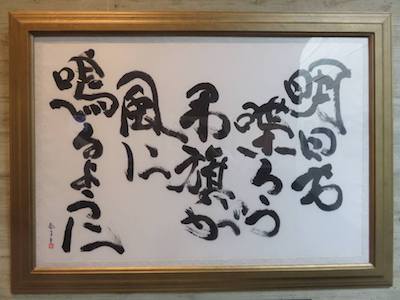 明日も
喋ろう
弔旗が
風に
鳴るように